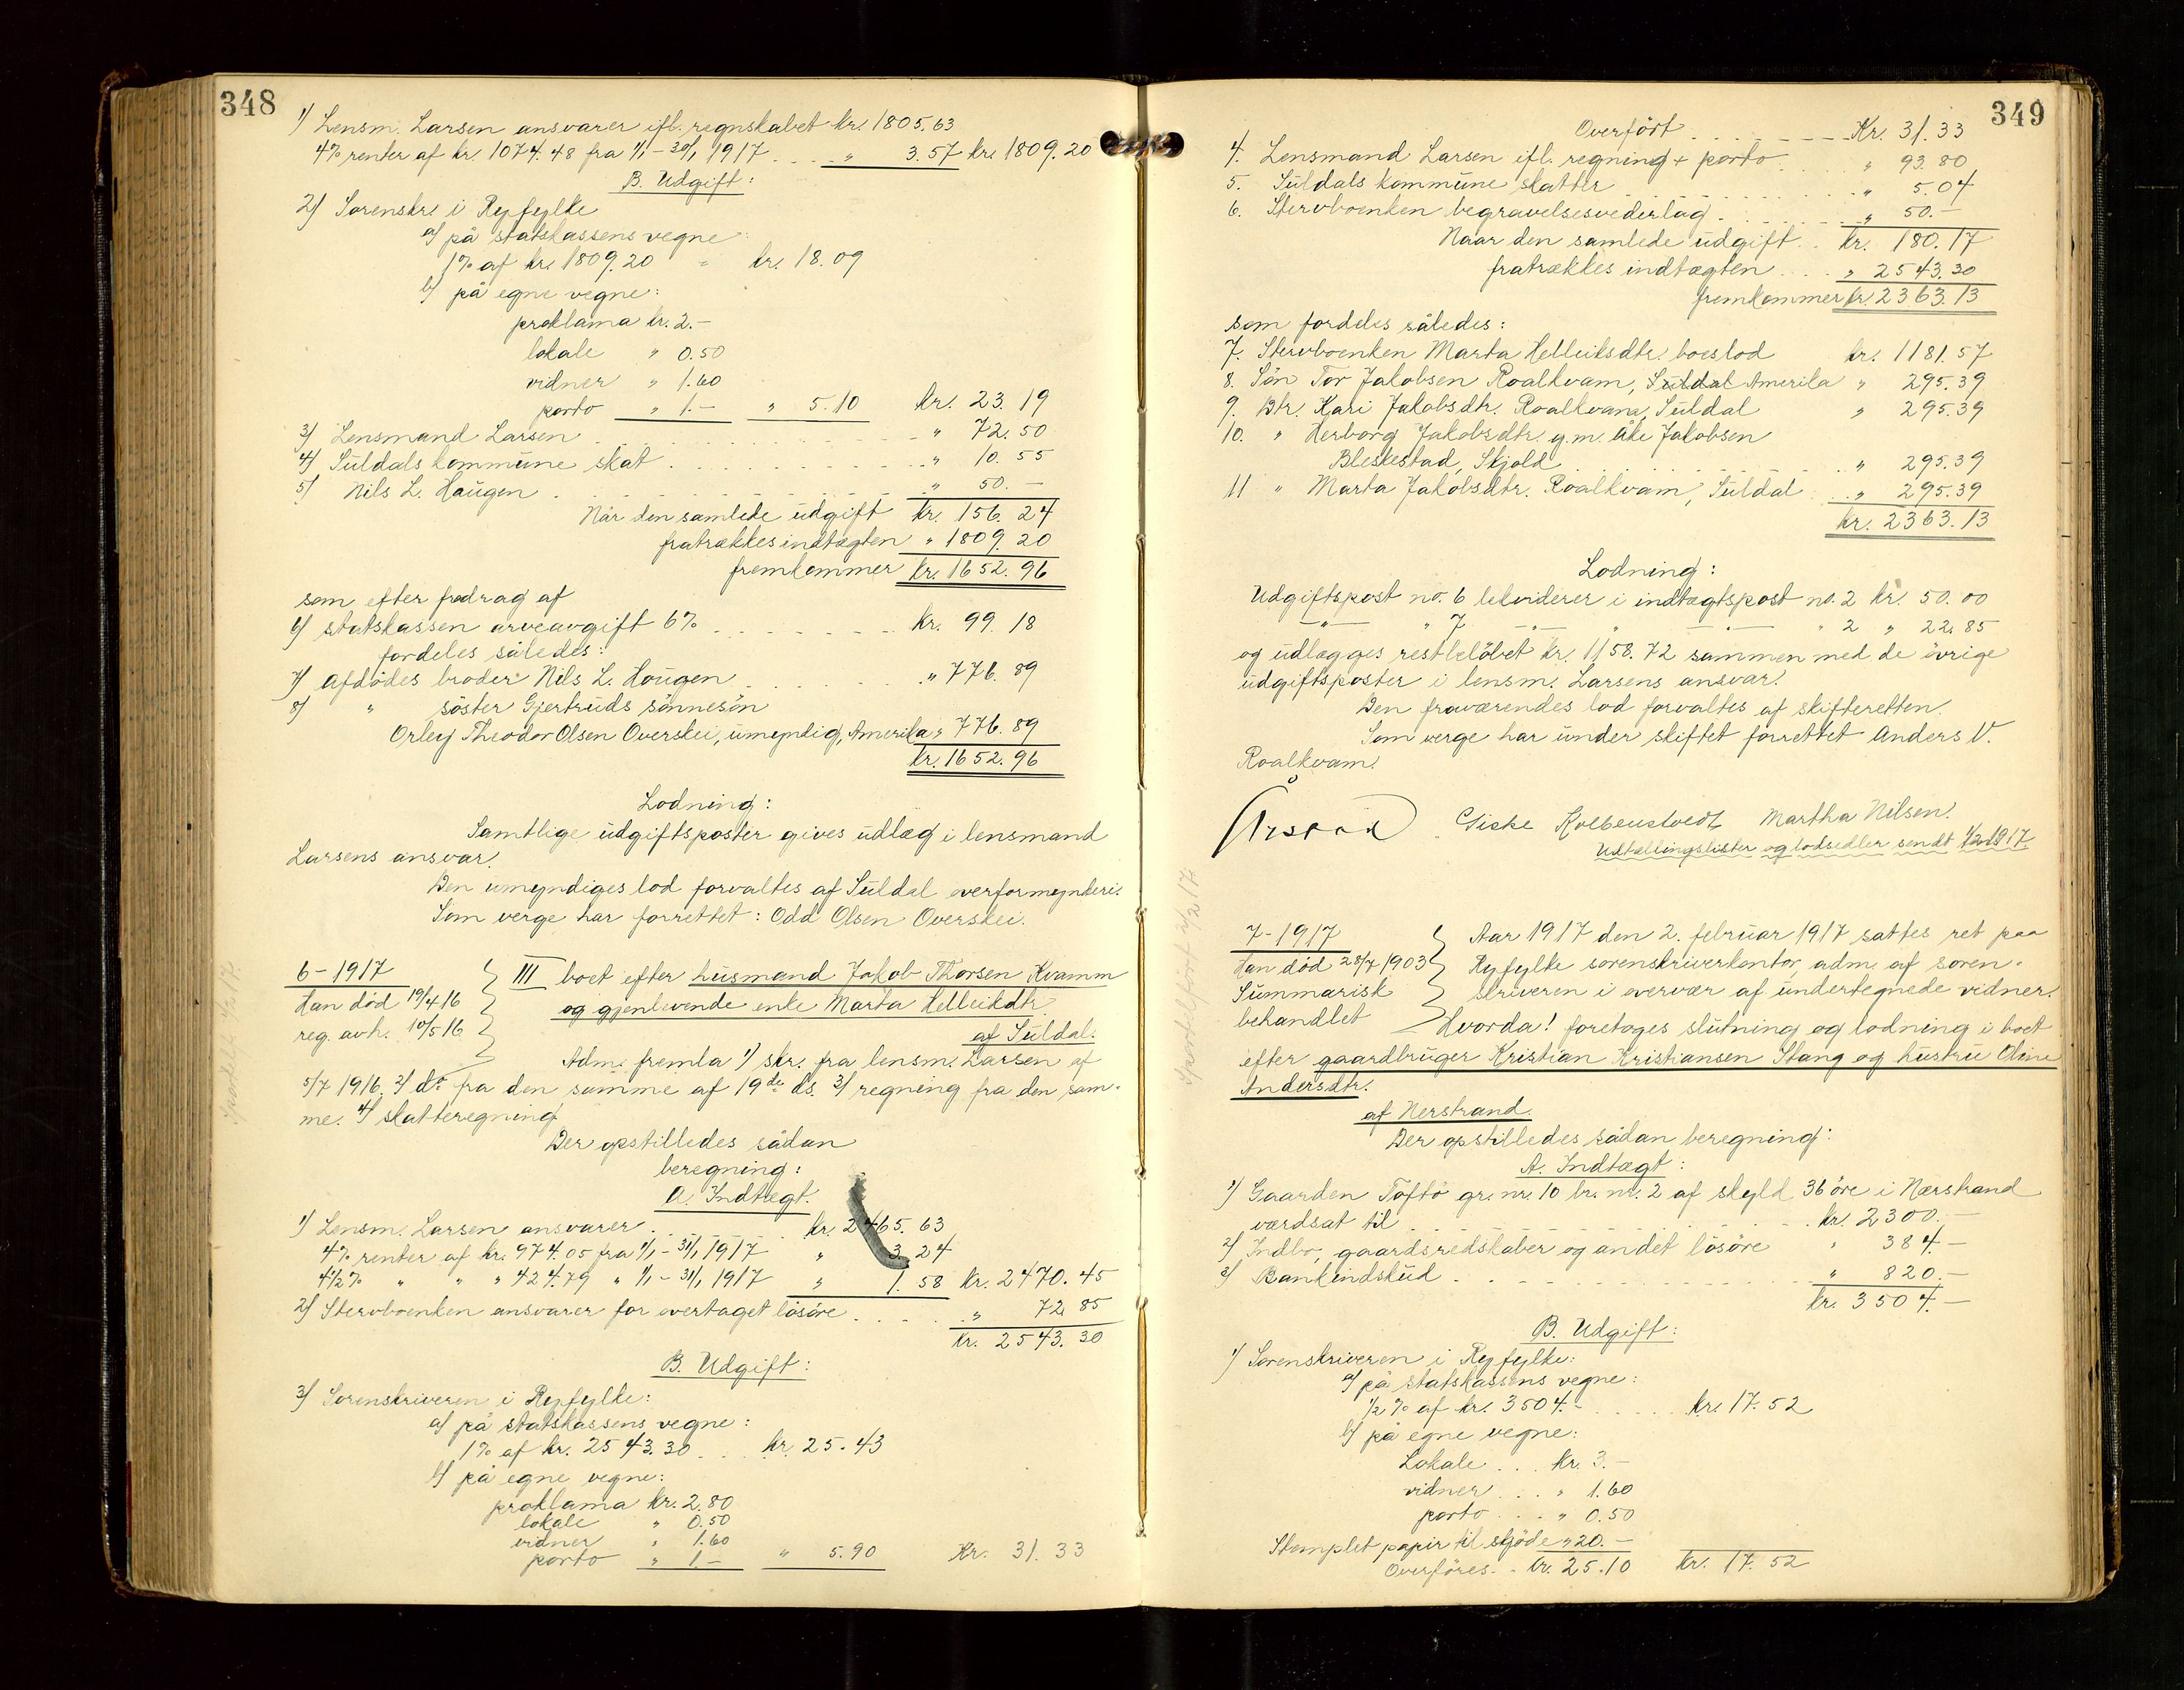 348
1) Lensm. Larsen ansvarer ifl. regnskabet kr. 1805.63
4% renter af kr. 1074.48 fra 1/1 - 30/1 1917 . . . . " 3.57 kr. 1809.20
B. Udgift:
2) Sorenskr. i Ryfylke
a) på statskassens vegne:
1% af kr. 1809.20 " kr. 18.09
b) på egne vegne:
proklama kr. 2.-
lokale " 0.50
vidner " 1.60
porto " 1.- " 5.10 kr. 23.19
3) Lensmand Larsen . . . . " 72.50
4) Suldals kommune skat . . . . " 10.55
5) Nils L. Haugen . . . . " 50.-
Når den samlede udgift kr. 156.24
fratrækkes indtægten " 1809.20
fremkommer kr. 1652.96
som efter fradrag af
6) statskassen arveavgift 6% . . . . kr. 99.18
fordeles således:
7) Afdødes broder Nils L. Hougen . . . . " 776.89
8) " søster Gjertruds sønnesøn
Orley Theodor Olsen Overskei, umyndig, Amerika " 776.89
kr. 1652.96
Lodning:
Samtlige udgiftsposter gives udlæg i lensmand
Larsens ansvar.
Den umyndiges lod forvaltes af Suldal overformynderi.
Som verge har forrettet: Odd Olsen Overskei.
6 - 1917
Han død 19/4 16
reg. avh. 10/5 16
III boet efter husmand Jakob Thorsen Kvamm
og gjenlevende enke Marta Helleikdtr.
af Suldal.
Adm. fremla 1) skr. fra lensm. Larsen af
5/7 1916, 2) do fra den samme af 19de ds. 3) regning fra den sam-
me. 4) skatteregning
Der opstilledes sådan
beregning:
A. Indtægt.
1) Lensm. Larsen ansvarer . . . . kr. 2465.63
4% renter af kr. 974.05 fra 1/1 - 31/1 1917 " 3.24
4 1/2% " " " 424.79 " 1/1 - 31/1 1917 " 1.58 kr. 2470.45
2) Stervboenken ansvarer for overtaget løsøre . . . . " 72.85
kr. 2543.30
B. Udgift:
3) Sorenskriveren i Ryfylke:
a) på statskassens vegne:
1% af kr. 2543.30 . . . kr. 25.43
b) på egne vegne:
proklama kr. 2.80
lokale " 0.50
vidner " 1.60
porto " 1.- " 5.90 Kr. 31.33
349
Overført . . . . Kr. 31.33
4. Lensmand Larsen ifl. regning + porto . . " 93.80
5. Suldals kommune skatter . . . . " 5.04
6. Stervboenken begravelsesvederlag . . . . " 50.-
Naar den samlede udgift . . kr. 180.17
fratrækkes indtægten . . . " 2543.30
fremkommer kr. 2363.13
som fordeles således:
7. Stervboenken Marta Helleiksdtr. boeslod kr. 1181.57
8. Søn Tor Jakobsen Roalkvam, Suldal Amerika " 295.39
9. Dtr. Kari Jakobsdtr. Roalkvam, Suldal " 295.39
10. " Herborg Jakobsdtr. g.m. Åke Jakobsen
Bleskestad, Skjold . . . . " 295.39
11 " Marta Jakobsdtr. Roalkvam, Suldal . . " 295.39
kr. 2363.13
Lodning:
Udgiftspost no. 6 likviderer i indtægtspost no. 2 kr. 50.00
—"— " 7 —"— " —"— " 2 " 22.85
og udlægges restbeløbet kr. 1158.72 sammen med de øvrige
udgiftsposter i lensm. Larsens ansvar.
Den fraværendes lod forvaltes af skifteretten.
Som verge har under skiftet forrettet Anders V.
Roalkvam.
Giske Kolbenstvedt Martha Nilsen.
Udtællingslister og lodsedler sendt 1/2 1917
7 - 1917
Han død 28/7 1903
Summarisk
behandlet
Aar 1917 den 2. februar 1917 sattes ret paa
Ryfylke sorenskriverkontor, adm. af soren-
skriveren i overvær af undertegnede vidner.
Hvorda! foretoges slutning og lodning i boet
efter gaardbruger Kristian Kristiansen Stang og hustru Oline
Andersdtr.
af Nerstrand.
Der opstilledes sådan beregning:
A. Indtægt:
1) Gaarden Toftø gr. nr. 10 br. nr. 2 af skyld 36 øre i Nærstrand
værdsat til . . . . kr. 2300.-
2) Indbo, gaardsredskaber og andet løsøre " 384.-
3) Bankindskud . . . . " 820.-
kr. 3504.-
B. Udgift:
1) Sorenskriveren i Ryfylke:
a) på statskassens vegne:
1/2% af kr. 3504.- . . . . kr. 17.52
b) på egne vegne:
Lokale . . . kr. 3.-
vidner . . . " 1.60
porto . . . " 0.50
Stemplet papir til skjøde " 20.-
Overføres . . kr. 25.10 kr. 17.52